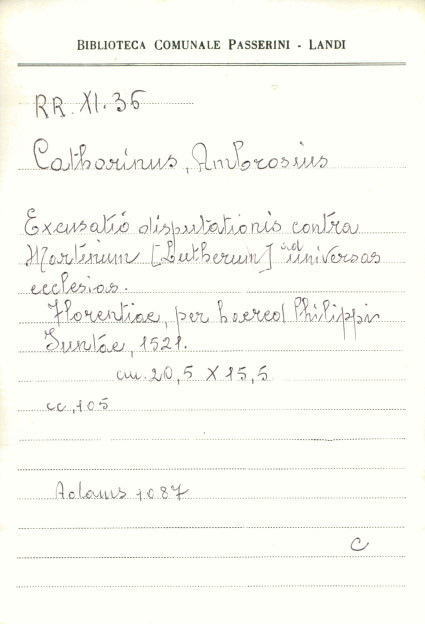 BIBLIOTECA COMUNALE PASSERINI - LANDI
RR. XI. 36
Catharinus, Ambrosius
Excusatio disputationis contra
Martinum [Lutherum] ad universas
ecclesias.
Florentiae, per haered Philippi
Iuntae, 1521.
cm. 20,5 X 15,5
cc, 105
Adams 1087
C